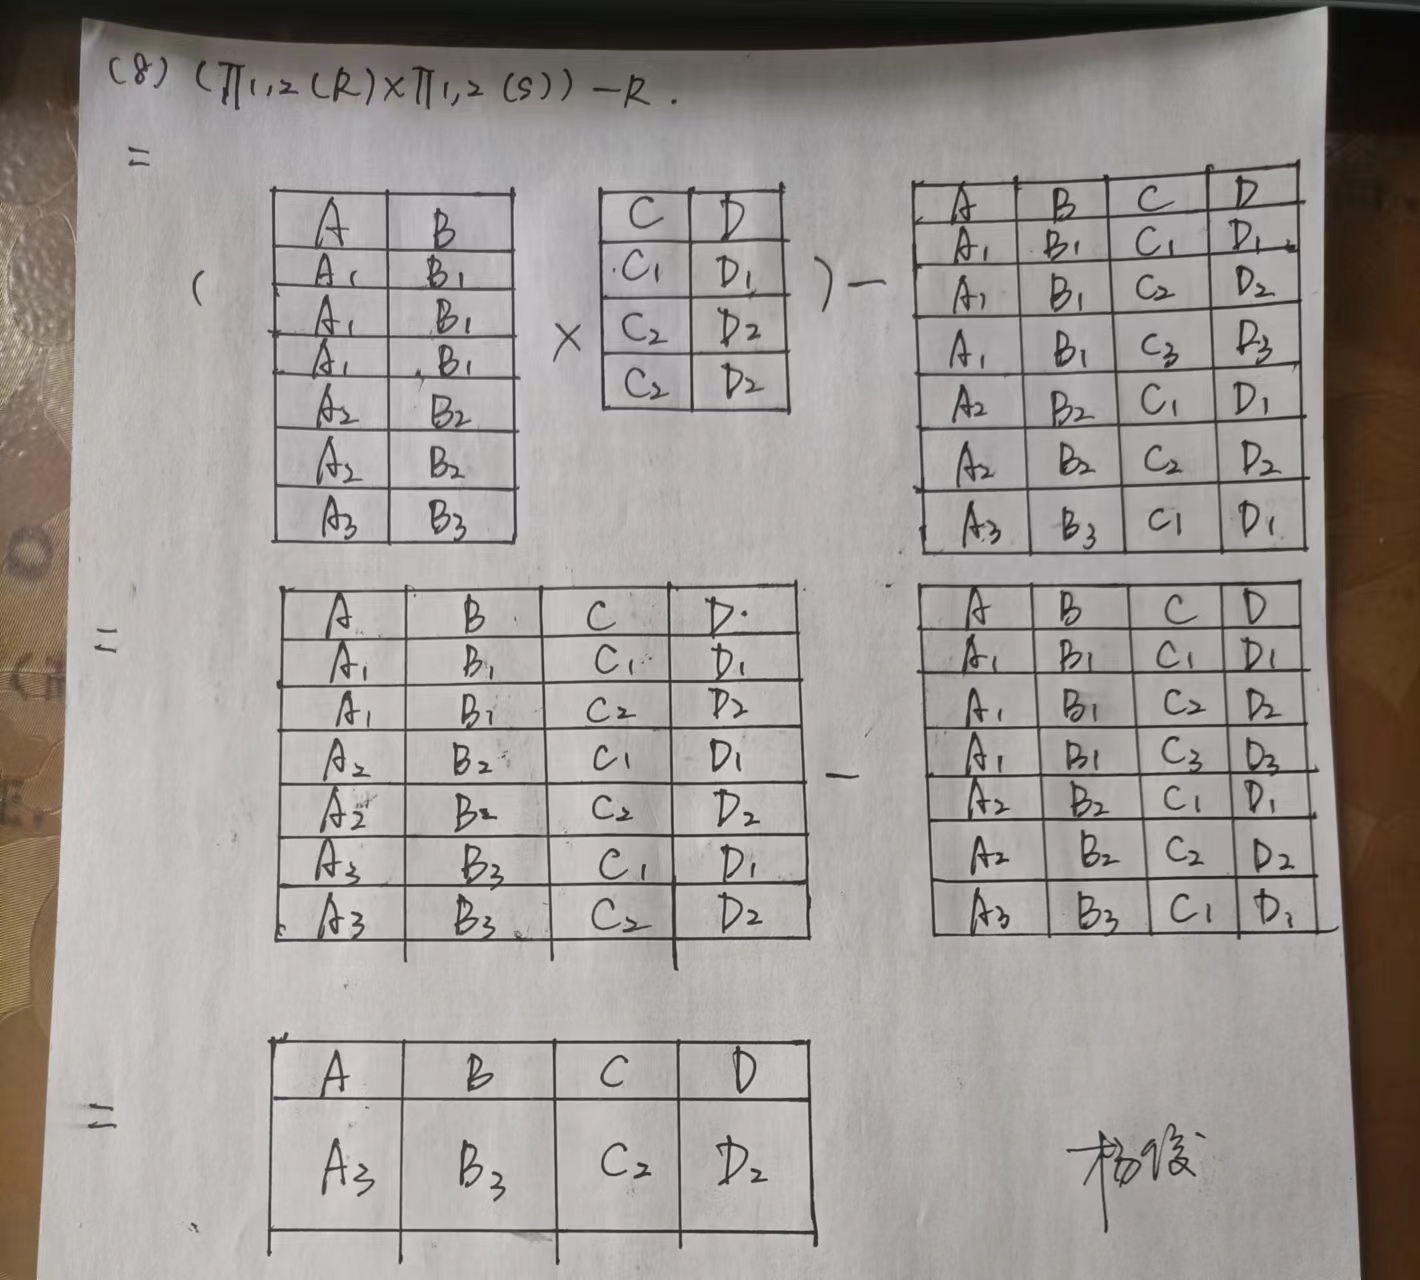 (8) (π₁,₂(R)×π₁,₂(S))-R.
=
(
A B
A₁ B₁
A₁ B₁
A₁ B₁
A₂ B₂
A₂ B₂
A₃ B₃
×
C D
C₁ D₁
C₂ D₂
C₂ D₂
) -
A B C D
A₁ B₁ C₁ D₁
A₁ B₁ C₂ D₂
A₁ B₁ C₃ D₃
A₂ B₂ C₁ D₁
A₂ B₂ C₂ D₂
A₃ B₃ C₁ D₁
=
A B C D
A₁ B₁ C₁ D₁
A₁ B₁ C₂ D₂
A₂ B₂ C₁ D₁
A₂ B₂ C₂ D₂
A₃ B₃ C₁ D₁
A₃ B₃ C₂ D₂
-
A B C D
A₁ B₁ C₁ D₁
A₁ B₁ C₂ D₂
A₁ B₁ C₃ D₃
A₂ B₂ C₁ D₁
A₂ B₂ C₂ D₂
A₃ B₃ C₁ D₁
=
A B C D
A₃ B₃ C₂ D₂
杨俊